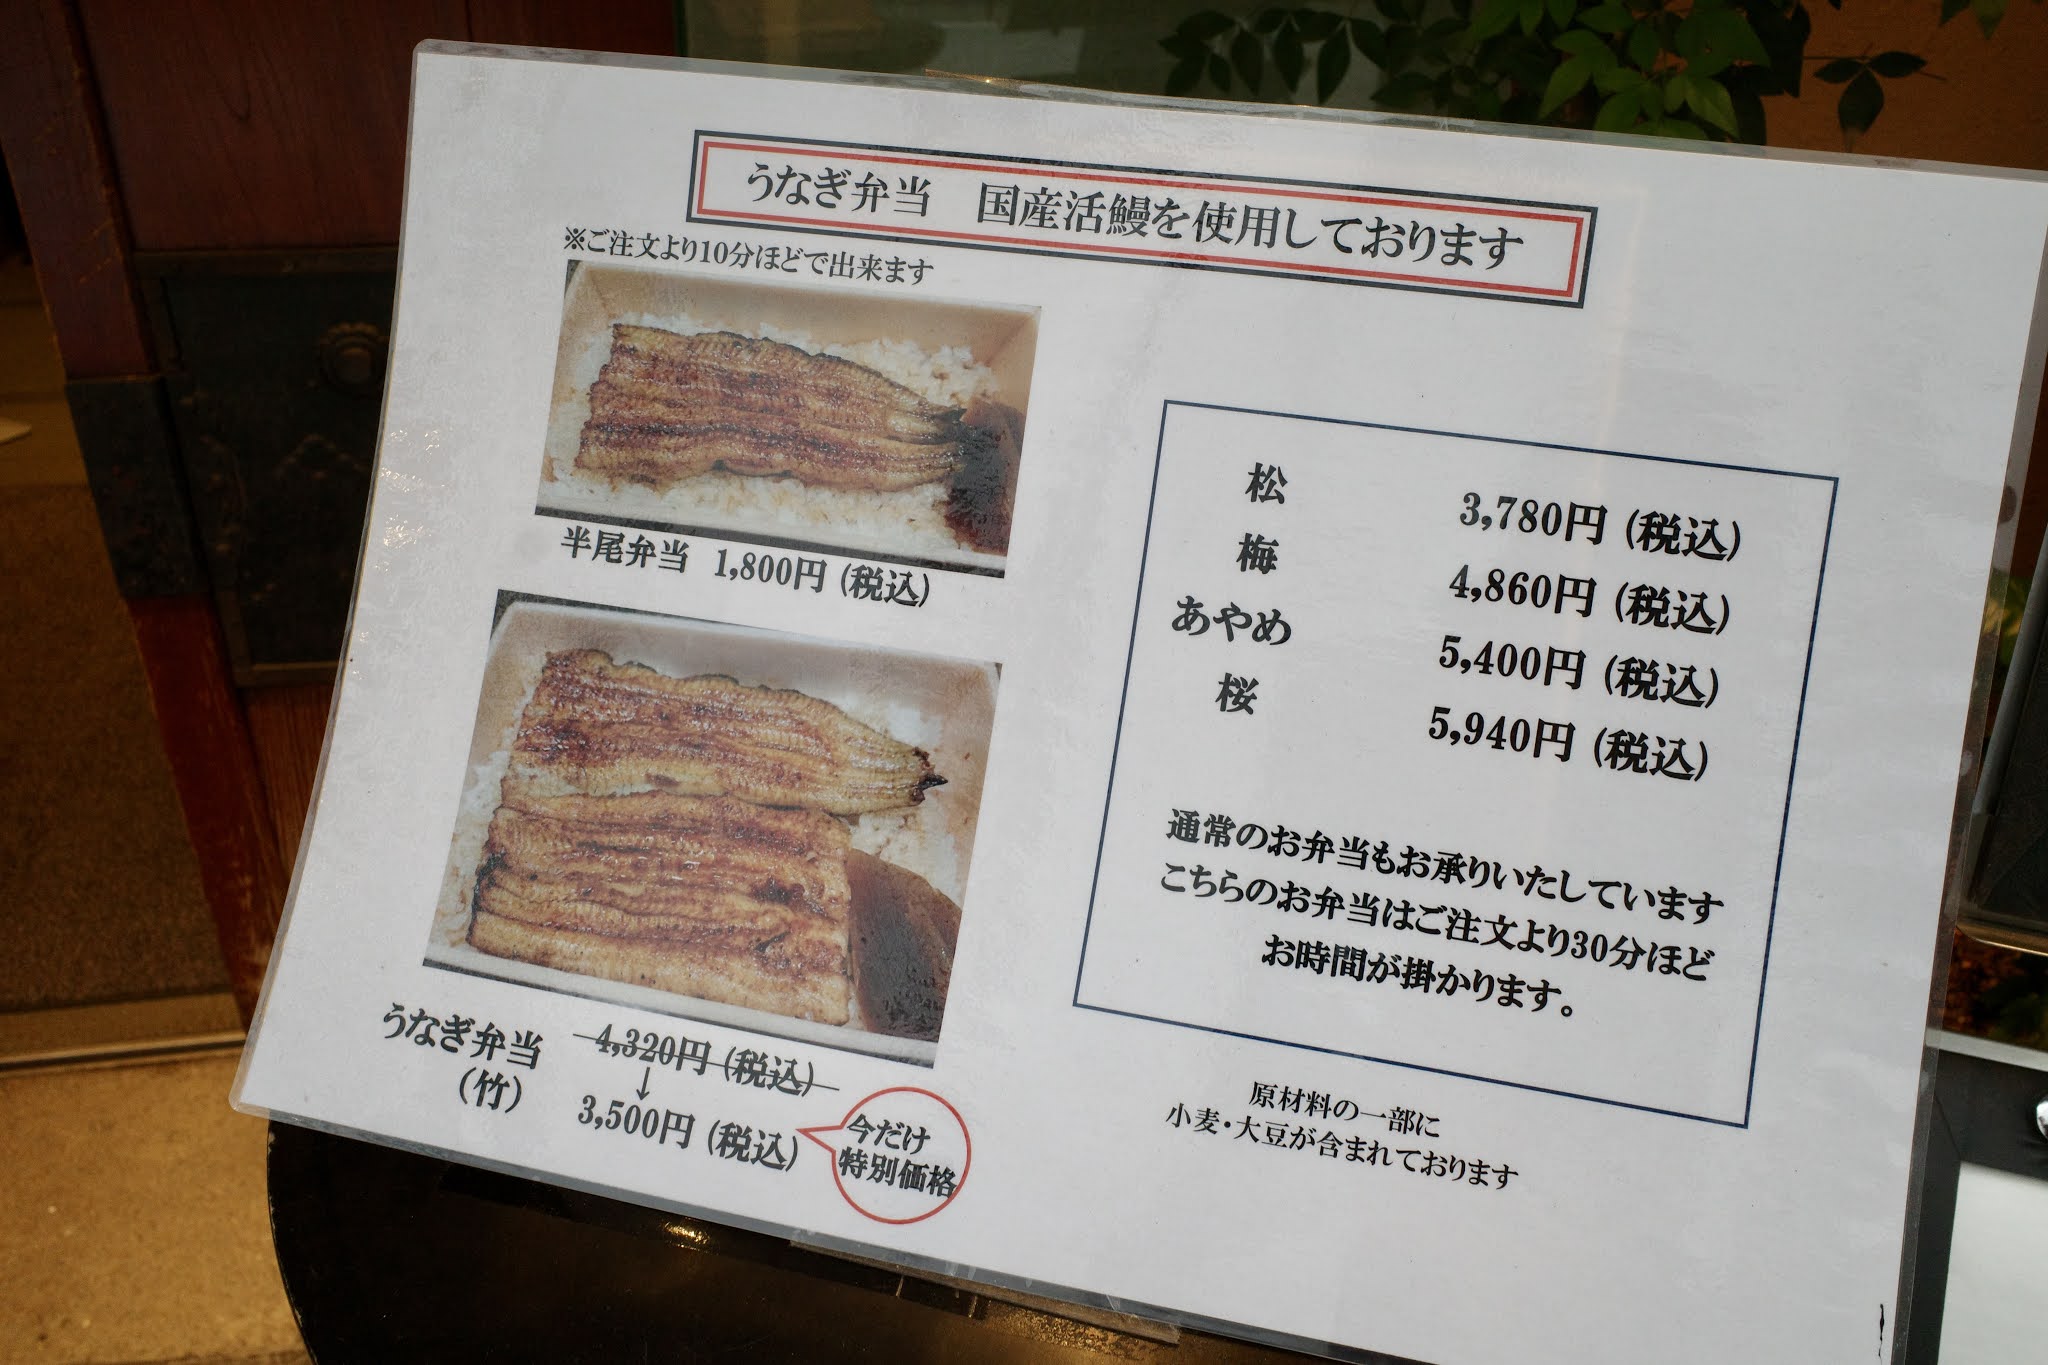 うなぎ弁当　国産活鰻を使用しております
※ご注文より10分ほどで出来ます
半尾弁当 1,800円 (税込)
うなぎ弁当 4,320円 (税込)
(竹)
↓
3,500円 (税込)
今だけ
特別価格
松 3,780円 (税込)
梅 4,860円 (税込)
あやめ 5,400円 (税込)
桜 5,940円 (税込)
通常のお弁当もお承りいたしています
こちらのお弁当はご注文より30分ほど
お時間が掛かります。
原材料の一部に
小麦・大豆が含まれております